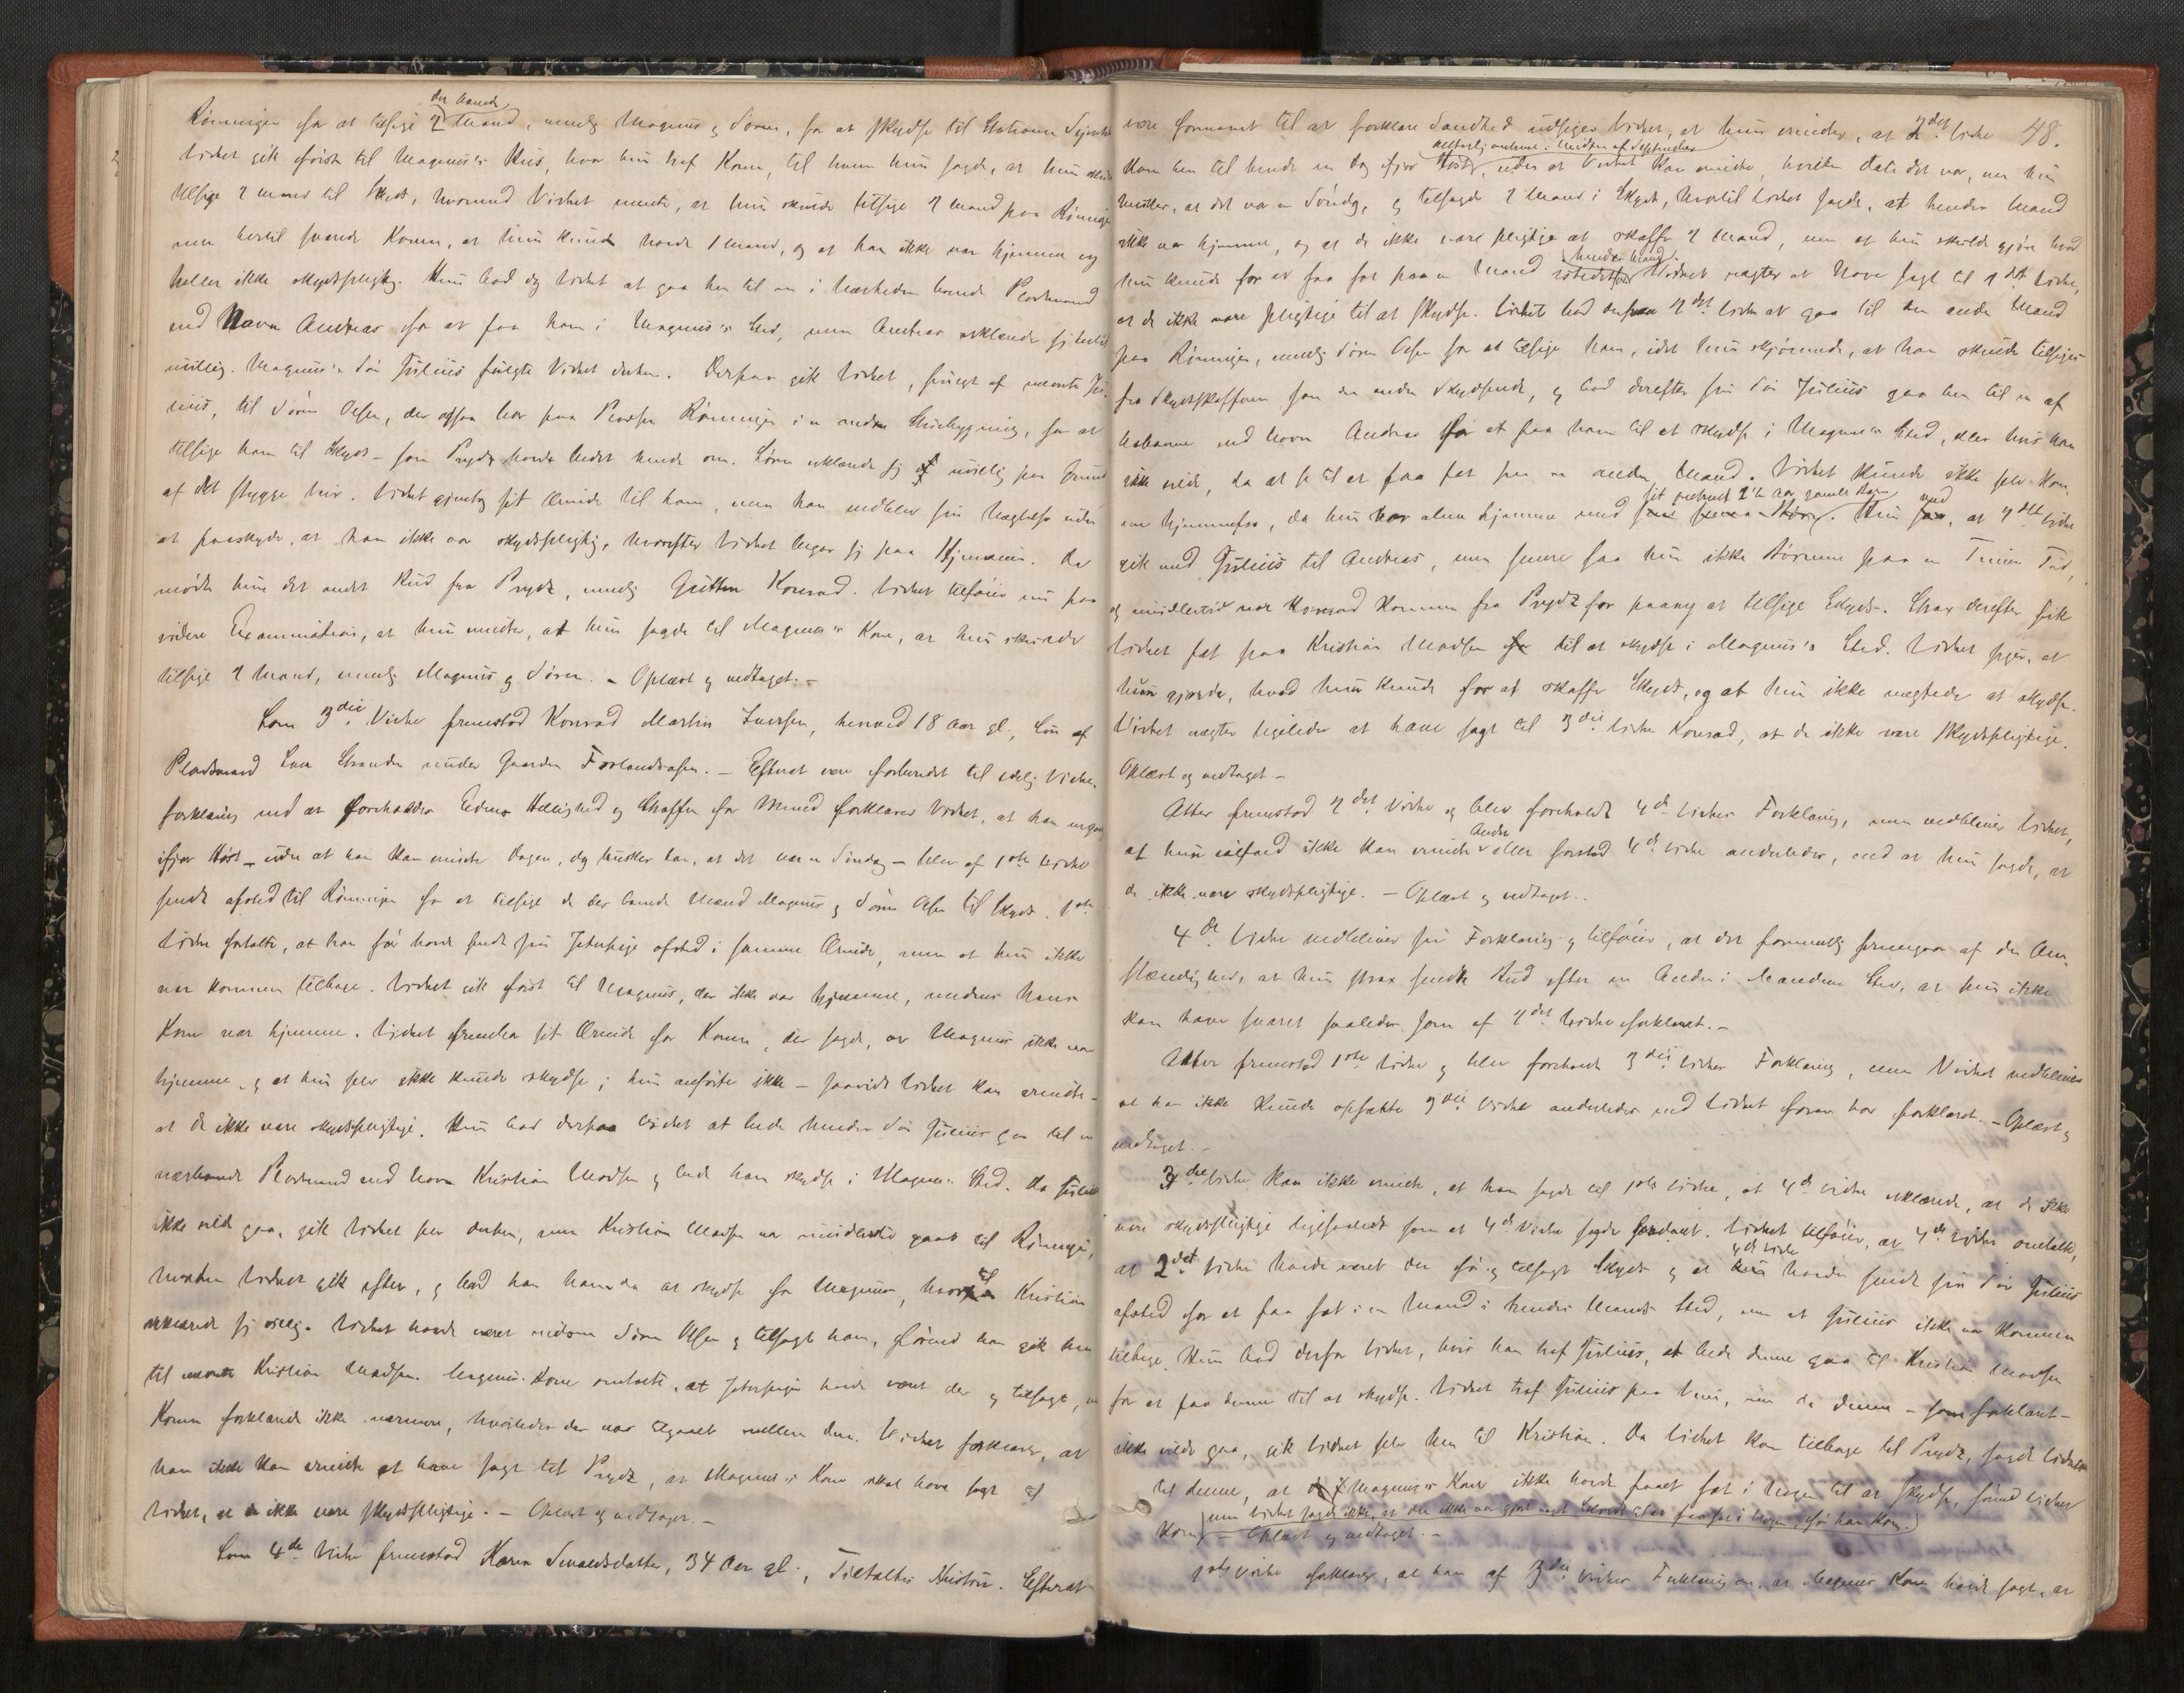 der boende
Rønningen for at tilsige 2 Mand, nemlig Magnus og Søren, for at skydse til Stationen
Vidnet gik først til Magnus's Hus, hvor hun traf Konen, til hvem hun sagde, at hun skulde
tilsige 2 Mand til Skyds, hvormed Vidnet mente, at hun skulde tilsige 2 Mand paa Rønningen
men hertil svarede Konen, at hun kunde havde 1 Mand, og at han ikke var hjemme og
heller ikke skydspligtig. Hun bad dog Vidnet at gaa hen til en i Nærheden boende Pladsmand
ved Navn Andreas for at faa ham i Magnus's Sted, men Andreas erklærede sig hertil
uvillig. Magnus's Søn Julius fulgte Vidnet derhen. Derpaa gik Vidnet, fulgt af nævnte Ju-
lius, til Søren Olsen, der ogsaa bor paa Pladsen Rønningen i en anden Stuebygning, for at
tilsige ham til Skyds – som Prydz havde bedet hende om. Søren erklærede sig uvillig paa Grund
af det stygge Veir. Vidnet gjentog sit Ærinde til ham, men han vedblev sin Nægtelse uden
at paaskyde, at han ikke var skydspligtig, hvorefter Vidnet begav sig paa Hjemveien. Da
mødte hun det andet Bud fra Prydz, nemlig Gutten Konrad. Vidnet tilføier nu paa
videre Examination, at hun mente, at hun sagde til Magnus's Kone, at hun skulde
tilsige 2 Mand, nemlig Magnus og Søren. – Oplæst og vedtaget. –
Som 3die Vidne fremstod Konrad Martin Iversen, henved 18 Aar gl., Søn af
Pladsmand Iver Stranden under Gaarden Forlandsaasen. – Efterat være forberedet til edelig Vidne-
forklaring ved at foreholdes Edens Hellighed og Straffen for Meened forklarer Vidnet, at han engang
ifjor Høst – uden at han kan erindre Dagen, dog husker han, at det var en Søndag – blev af 1ste Vidne
sendt afsted til Rønningen for at tilsige de der boende Mænd Magnus og Søren Olsen til Skyds. 1ste
Vidne fortalte, at han før havde sendt sin Jeterpige afsted i samme Ærinde, men at hun ikke
var kommen tilbage. Vidnet gik først til Magnus, der ikke var hjemme, medens hans
Kone var hjemme. Vidnet frembar sit Ærinde for Konen, der sagde, at Magnus ikke var
hjemme, og at hun selv ikke kunde skydse; hun anførte ikke – saavidt Vidnet kan erindre –
at de ikke vare skydspligtige. Hun bad derpaa Vidnet at bede hendes Søn Julius gaa til en
nærboende Pladsmand ved Navn Kristian Madsen og bede ham skydse i Magnus's Sted. Da Julius
ikke vilde gaa, gik Vidnet selv derhen, men Kristian Madsen var imidlertid gaaet til Rønningen,
hvorhen Vidnet gik efter, og bad han ham da at skydse for Magnus, hvortil Kristian
erklærede sig villig. Vidnet havde været indom Søren Olsen og tilsagt ham, førend han gik hen
til Kristian Madsen. Magnus's Kone omtalte, at Jeterpigen havde været der og tilsagt, men
Konen forklarede ikke nærmere, hvorledes det var tilgaaet mellem dem. Vidnet forklarer, at
han ikke kan erindre at have sagt til Prydz, at Magnus's Kone skal have sagt til
Vidnet, at de ikke vare skydspligtige. – Oplæst og vedtaget. –
Som 4de Vidne fremstod Karen Sivaldsdatter, 34 Aar gl., Tiltaltes Hustru. Efterat
48.
være formanet til at forklare Sandhed udsiger Vidnet, at hun erindrer, at 2det Vidne
i Midten af September
kom hen til hende en Dag ifjor Høst, uden at Vidnet kan erindre, hvilken Dato det var, men hun
husker, at det var en Søndag, og tilsagde 2 Mand i Skyds, hvortil Vidnet sagde, at hendes Mand
ikke var hjemme, og at de ikke vare pligtige at skaffe 2 Mand, men at hun skulde gjøre hvad
hendes Mand.
hun kunde for at faa fat paa en Mand istedetfor Vidnet nægter at have sagt til 2det Vidne,
at de ikke vare pligtige til at skydse. Vidnet bad derfor 2det Vidne at gaa til den anden Mand
paa Rønningen, nemlig Søren Olsen for at tilsige ham, idet hun skjønnede, at han skulde tilsiges
fra Skydsskafferen som den anden Skydsende, og bad derefter sin Søn Julius gaa hen til en af
Naboerne ved Navn Andreas for at faa ham til at skydse i Magnus's Sted, eller hvis han
ikke vilde, da at se til at faa fat paa en anden Mand. Vidnet kunde ikke selv kom-
sit 2½ Aar gamle Barn
me hjemmefra, da hun var alene hjemme med. Hun ved, at 2det Vidne
gik med Julius til Andreas, men senere saa hun ikke Børnene paa en Times Tid,
og imidlertid var Konrad kommen fra Prydz for paany at tilsige Skyds. Strax derefter fik
Vidnet fat paa Kristian Madsen til at skydse i Magnus's Sted. Vidnet siger, at
hun gjorde, hvad hun kunde for at skaffe Skyds, og at hun ikke nægtede at skydse.
Vidnet nægter ligeledes at have sagt til 3die Vidne Konrad, at de ikke vare skydspligtige.
Oplæst og vedtaget –
Atter fremstod 2det Vidne og blev foreholdt 4de Vidnes Forklaring, men vedbliver Vidnet,
Andet
at hun ialfald ikke kan erindre eller forstod 4de Vidne anderledes, end at hun sagde, at
de ikke vare skydspligtige. – Oplæst og vedtaget. –
4de Vidne vedbliver sin Forklaring og tilføier, at det formentlig fremgaar af den Om-
stændighed, at hun strax sendte Bud efter en Anden i Mandens Sted, at hun ikke
kan have svaret saaledes som af 2det Vidne forklaret. –
Atter fremstod 1ste Vidne og blev foreholdt 3die Vidnes Forklaring, men Vidnet vedbliver
at han ikke kunde opfatte 3die Vidne anderledes end Vidnet foran har forklaret. – Oplæst og
vedtaget. –
3die Vidne kan ikke erindre, at han sagde til 1ste Vidne, at 4de Vidne erklærede, at de ikke
vare skydspligtige ligesaalidt som at 4de Vidne sagde saadant. Vidnet tilføier, at 4de Vidne omtalte,
4de Vidne
at 2det Vidne havde været der før og tilsagt Skyds og at havde sendt sin Søn Julius
afsted for at faa fat i en Mand i hendes Mands Sted, men at Julius ikke var kommen
tilbage. Hun bad derfor Vidnet, hvis han traf Julius, at bede denne gaa til Kristian Madsen
for at faa denne til at skydse. Vidnet traf Julius paa Veien, men da denne – som forklaret –
ikke vilde gaa, gik Vidnet selv hen til Kristian. Da Vidnet kom tilbage til Prydz, sagde Vidnet
til denne, at Magnus's Kone ikke havde faaet fat i Nogen til at skydse, førend Vidnet
men Vidnet sagde ikke, at der ikke var gjort noget til at faa fat i Nogen, før han kom.
kom – Oplæst og vedtaget. –
1ste Vidne forklarer, at han af 3die Vidnes Forklaring om, at Magnus's Kone havde sagt, at